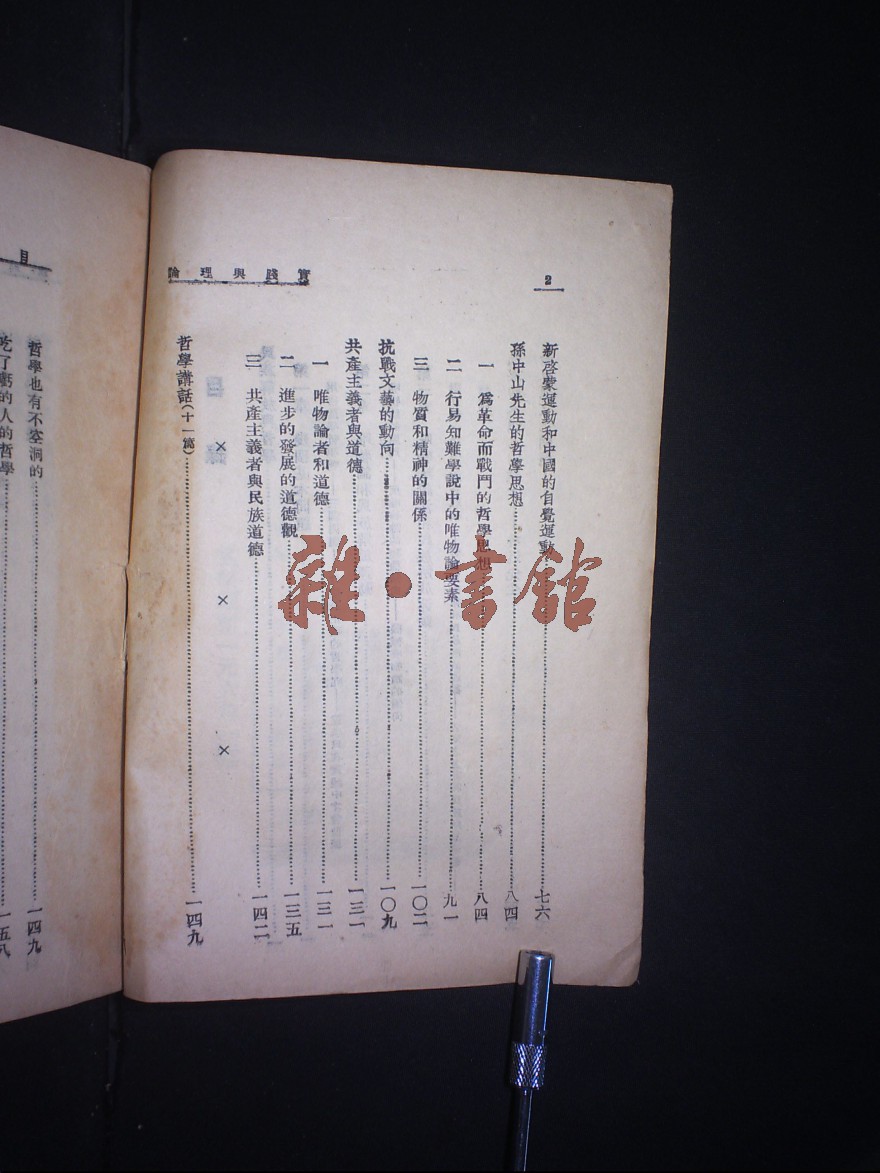 2
論理與踐實
新啓蒙運動和中國的自覺運動……七六
孫中山先生的哲學思想……八四
一 爲革命而戰鬥的哲學思想……八四
二 行易知難學說中的唯物論要素……九一
三 物質和精神的關係……一〇二
抗戰文藝的動向……一〇九
共產主義者與道德……一三一
一 唯物論者和道德……一三一
二 進步的發展的道德觀……一三五
三 共產主義者與民族道德……一四二
× × ×
哲學講話(十一篇)……一四九
目
哲學也有不空洞的……一四九
吃了虧的人的哲學……一五八
雜·書館